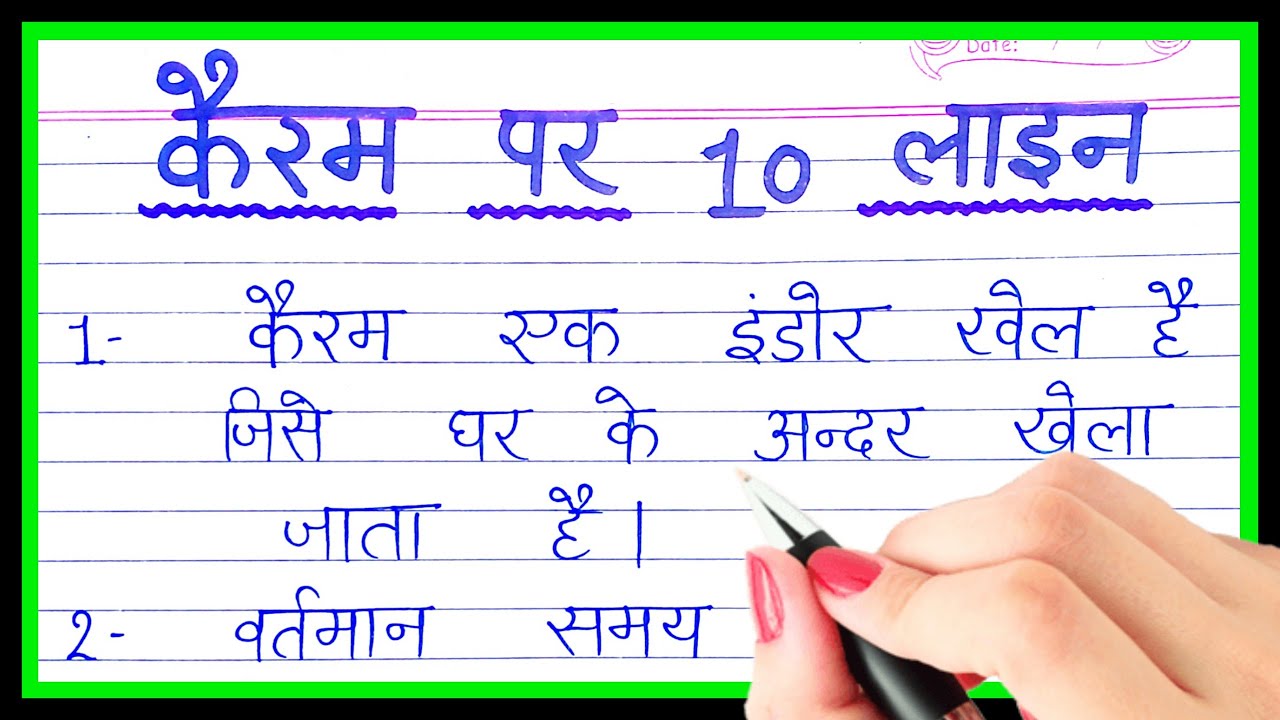 Date: / /
कैरम पर 10 लाइन
1- कैरम एक इंडोर खेल है
जिसे घर के अन्दर खेला
जाता है।
2- वर्तमान समय